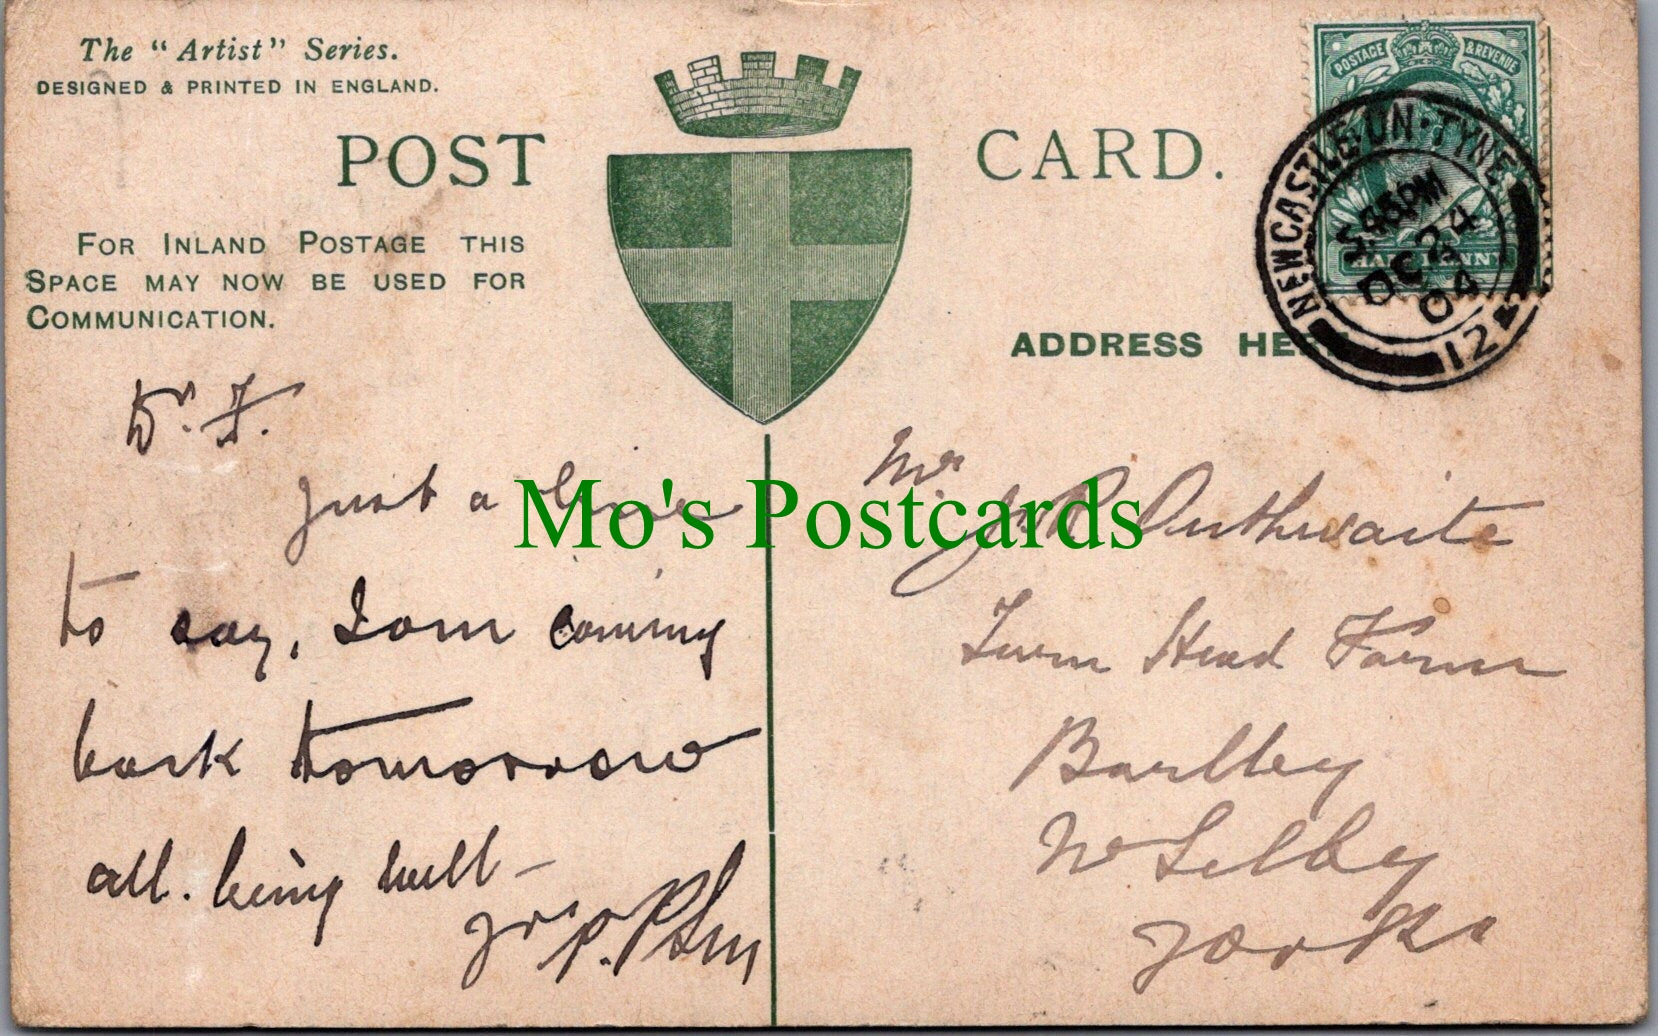 The "Artist" Series.
DESIGNED & PRINTED IN ENGLAND.
POST CARD.
FOR INLAND POSTAGE THIS
SPACE MAY NOW BE USED FOR
COMMUNICATION.
POSTAGE & REVENUE
HALFPENNY
NEWCASTLE-ON-TYNE
DE 24
04
ADDRESS HE
Dr. F.
Just a line
to say, I am coming
back tomorrow
all. being well -
Yrs
Mr
Jn R Outhwaite
Turn Head Farm
Barlby
Nr Selby
Yorks
Mo's Postcards